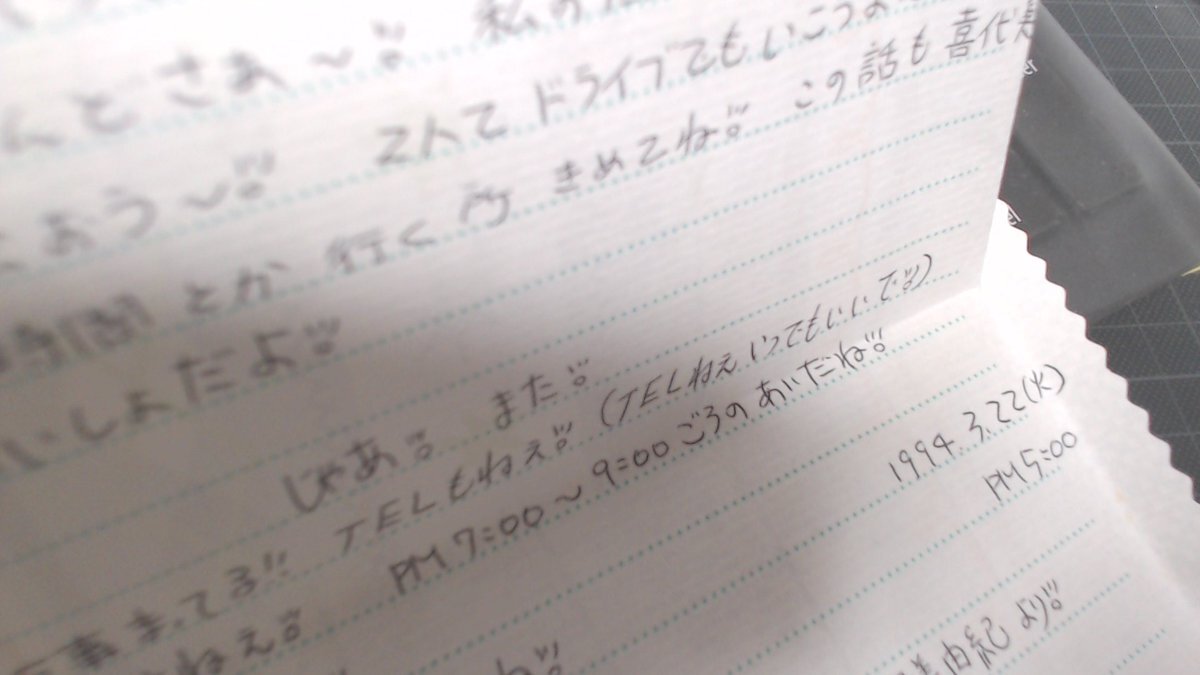 んどさぁ〜 私の
ょおう〜 2人でドライブでもいこうよ
時間とか行く所きめてね この話も喜代
いしょだよ
じゃあ また
TELもねぇ (TELねぇいつでもいいで)
事まってる PM7:00〜9:00ごろのあいだね
ねぇ
1994.3.22(火)
PM5:00
由紀より